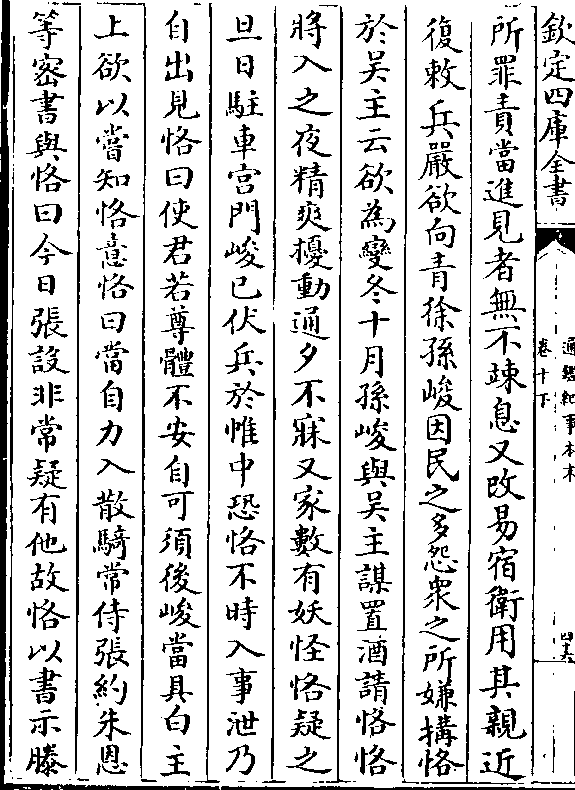 欽定四庫全書
通鑑紀事本末
卷十下
所罪責當進見者無不竦息又改易宿衛用其親近
復敕兵嚴欲向青徐孫峻因民之多怨衆之所嫌搆恪
於吳主云欲為變冬十月孫峻與吳主謀置酒請恪恪
將入之夜精爽擾動通夕不寐又家數有妖怪恪疑之
旦日駐車宫門峻已伏兵於帷中恐恪不時入事泄乃
自出見恪曰使君若尊體不安自可須後峻當具白主
上欲以嘗知恪意恪曰當自力入散騎常侍張約朱恩
等密書與恪曰今日張設非常疑有他故恪以書示滕